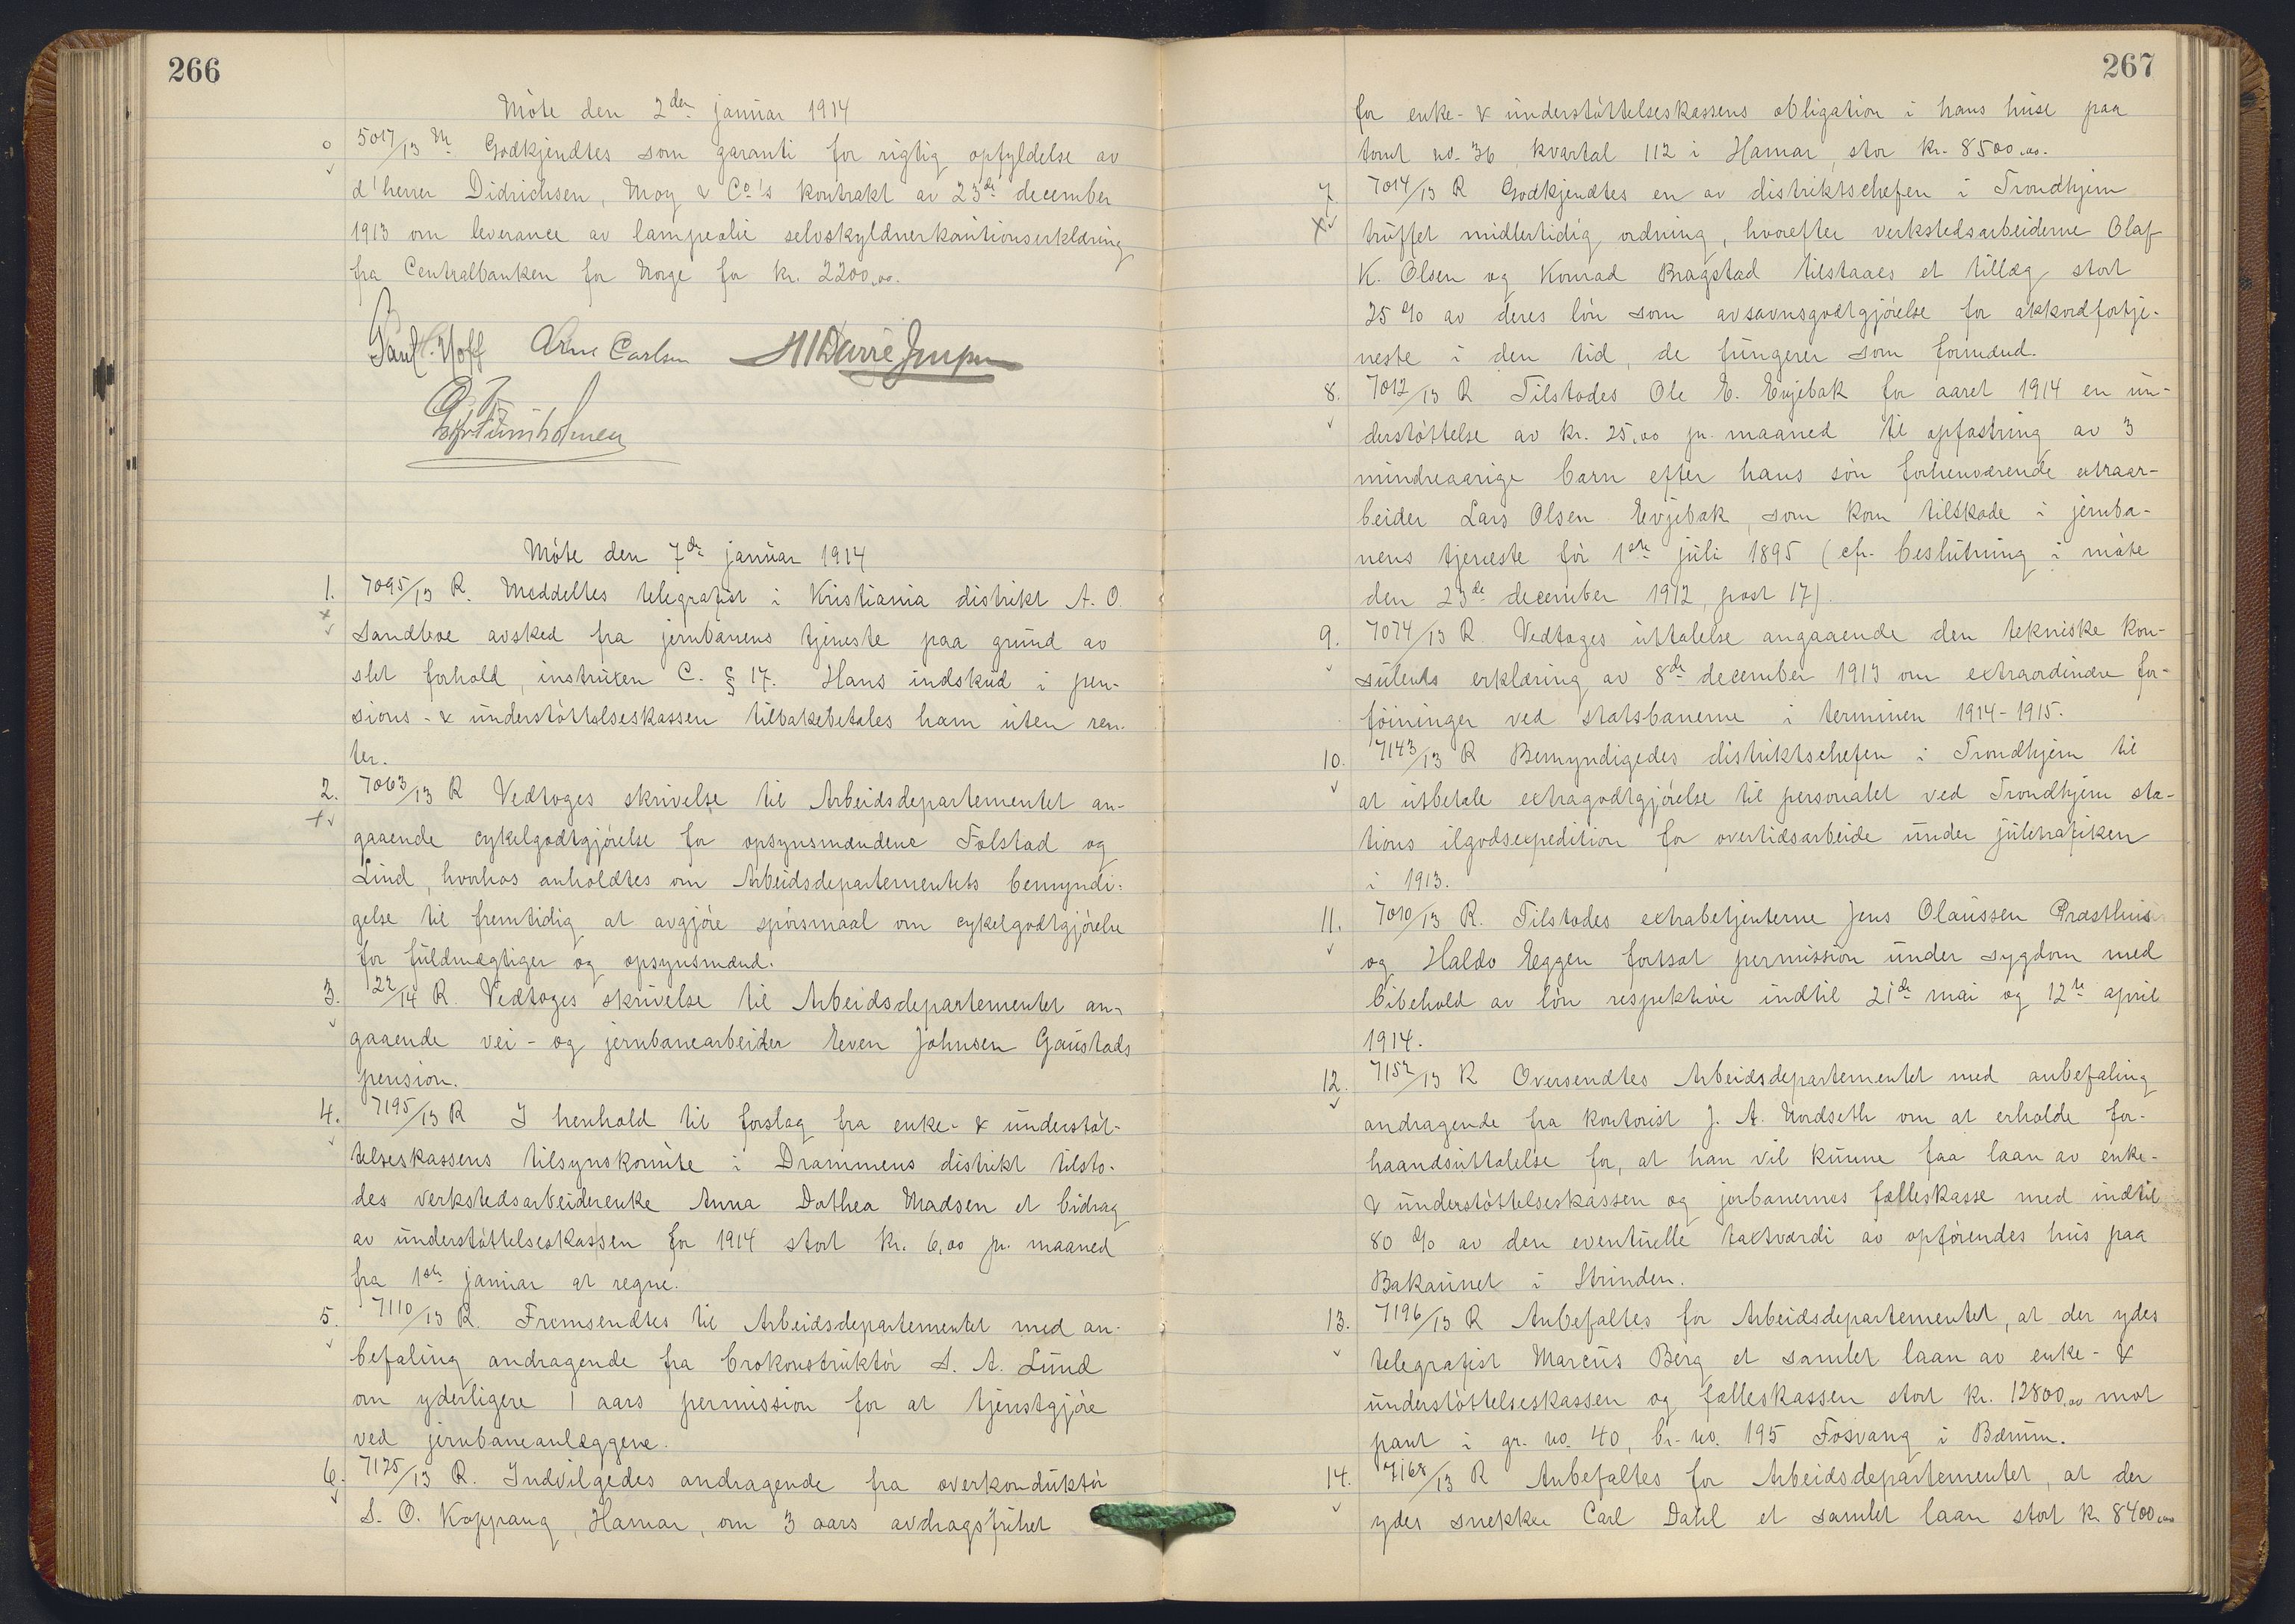 266
Møte den 2den januar 1914
5017/13 M Godkjendtes som garanti for rigtig opfyldelse av
d'herrer Didrichsen, Moy & Co's kontrakt av 23de december
1913 om leverance av lampeolie selvskyldnerkautionserklæring
fra Centralbanken for Norge for kr. 2200,00.
Paul Hoff Arne Carlsen
Møte den 7de januar 1914
1. 7095/13 R. Meddeltes telegrafist i Kristiania distrikt A. O.
Sandboe avsked fra jernbanens tjeneste paa grund av
slet forhold, instruxen C. § 17. Hans indskud i pen-
sions- & understøttelseskassen tilbakebetales ham uten ren-
ter.
2. 7063/13 R Vedtoges skrivelse til Arbeidsdepartementet an-
gaaende cykelgodtgjørelse for opsynsmændene Folstad og
Lind, hvorhos anholdtes om Arbeidsdepartementets bemyndi-
gelse til fremtidig at avgjøre spørsmaal om cykelgodtgjørelse
for fuldmægtiger og opsynsmænd.
3. 122/14 R. Vedtoges skrivelse til Arbeidsdepartementet an-
gaaende vei- og jernbanearbeider Even Johnsen Gaustads
pension.
4. 7195/13 R I henhold til forslag fra enke- & understøt-
telseskassens tilsynskomite i Drammens distrikt tilsto-
des verkstedsarbeiderenke Anna Dothea Madsen et bidrag
av understøttelseskassen for 1914 stort kr. 6,00 pr. maaned
fra 1ste januar at regne.
5. 7110/13 R. Fremsendtes til Arbeidsdepartementet med an-
befaling andragende fra brokonstruktør S. A. Lund
om yderligere 1 aars permission for at tjenstgjøre
ved jernbaneanlæggene.
6. 7125/13 R. Indvilgedes andragende fra overkonduktør
S. O. Koppang, Hamar, om 3 aars avdragsfrihet
267
for enke- & understøttelseskassens obligation i hans huse paa
tomt no. 36 kvartal 112 i Hamar, stor kr. 8500,00.
7. 7014/13 R Godkjendtes en av distriktschefen i Trondhjem
truffet midlertidig ordning, hvorefter verkstedsarbeiderne Olaf
K. Olsen og Konrad Bragstad tilstaaes et tillæg stort
25 % av deres løn som avsavnsgodtgjørelse for akkordfortje-
neste i den tid, de fungerer som formænd.
8. 7012/13 R Tilstodes Ole E. Evjebak for aaret 1914 en un-
derstøttelse av kr. 25,00 pr. maaned til opfostring av 3
mindreaarige barn efter hans søn forhenværende extraar-
beider Lars Olsen Evjebak, som kom tilskade i jernba-
nens tjeneste før 1ste juli 1895 (cfr. beslutning i møte
den 23de december 1912, post 17).
9. 7074/13 R. Vedtoges uttalelse angaaende den tekniske kon-
sulents erklæring av 8de december 1913 om extraordinære for-
føininger ved statsbanerne i terminen 1914-1915.
10. 7143/13 R Bemyndigedes distriktschefen i Trondhjem til
at utbetale extragodtgjørelse til personalet ved Trondhjem sta-
tions ilgodsexpedition for overtidsarbeide under juletrafiken
i 1913.
11. 7010/13 R. Tilstodes extrabetjenterne Jens Olaussen Præsthus
og Haldo Eggen fortsat permission under sygdom med
bibehold av løn respektive indtil 21de mai og 12te april
1914.
12. 7152/13 R Oversendtes Arbeidsdepartementet med anbefaling
andragende fra kontorist J. A. Nordseth om at erholde for-
haandsuttalelse for, at han vil kunne faa laan av enke-
& understøttelseskassen og jerbanernes fælleskasse med indtil
80 % av den eventuelle taxtværdi av opførendes hus paa
Bakaunet i Strinden.
13. 7196/13 R Anbefaltes for Arbeidsdepartementet, at der ydes
telegrafist Marcus Berg et samlet laan av enke- &
understøttelseskassen og fælleskassen stort kr. 12800,00 mot
pant i gr. no. 40, br. no. 195 Fosvang i Bærum.
14. 7168/13 R Anbefaltes for Arbeidsdepartementet, at der
ydes snekker Carl Dahl et samlet laan stort kr 8400,00